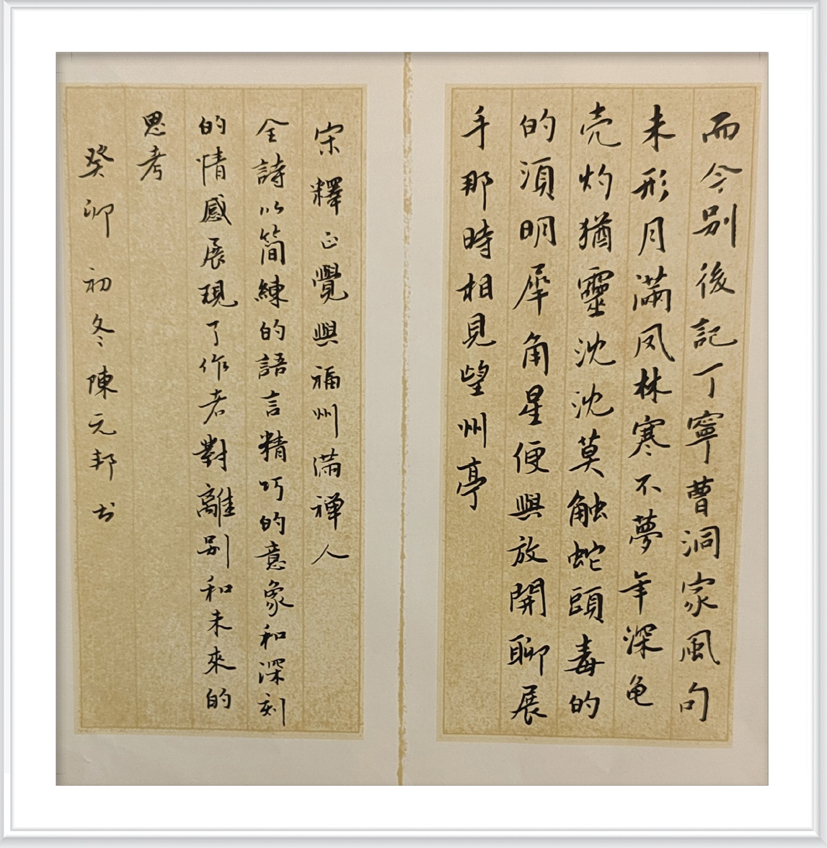 而今别後記丁寧曹洞家風句
未形月滿凤林寒不夢年深龟
壳灼猶靈沈沈莫触蛇頭毒的
的湏明犀角星便與放開聊展
手那時相見望州亭
宋釋正覺與福州滿禅人
全詩以簡練的語言精巧的意象和深刻
的情感展現了作者對離别和未來的
思考
癸卯初冬陳元邦书